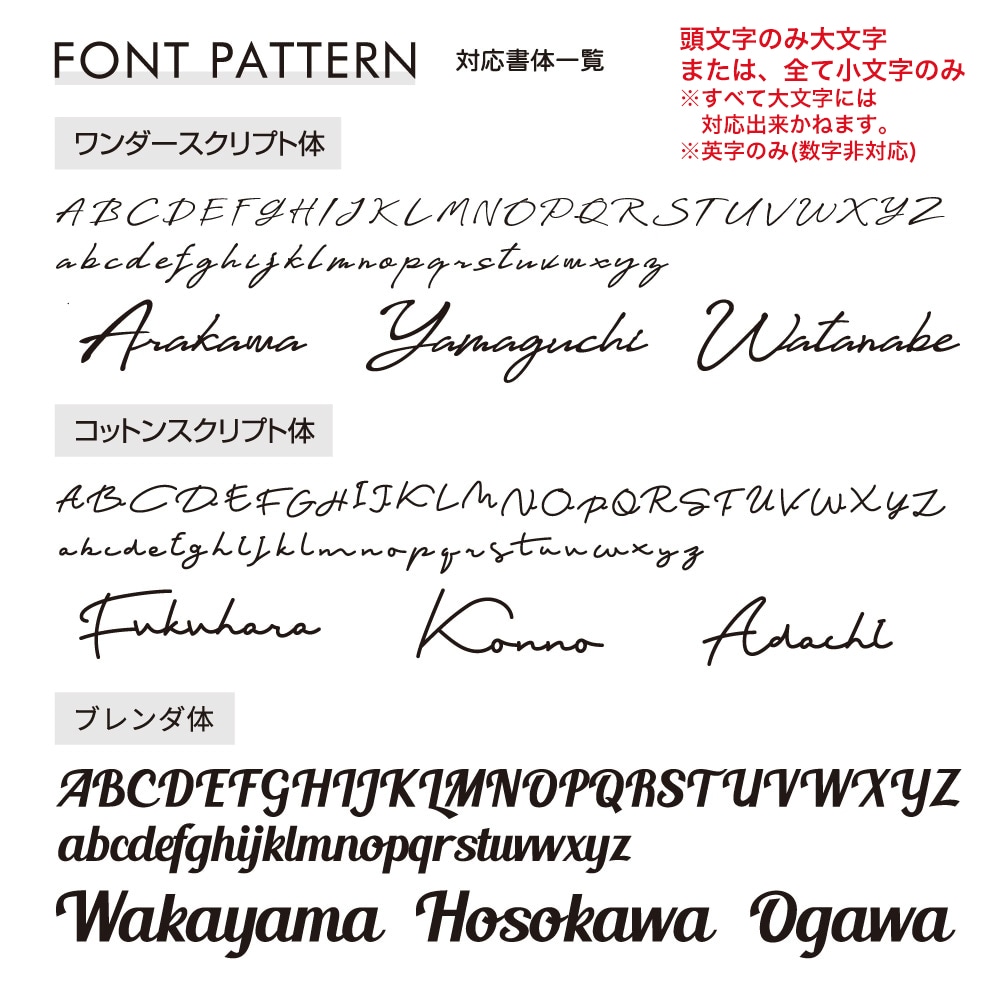 FONT PATTERN 対応書体一覧
頭文字のみ大文字
または、全て小文字のみ
※すべて大文字には
対応出来かねます。
※英字のみ(数字非対応)
ワンダースクリプト体
ABCDEFGHIJKLMNOPQRSTUVWXYZ
abcdefghijklmnopqrstuvwxyz
Arakawa Yamaguchi Watanabe
コットンスクリプト体
ABCDEFGHIJKLMNOPQRSTUVWXYZ
abcdefghijklmnopqrstuvwxyz
Fukuhara Konno Adachi
ブレンダ体
ABCDEFGHIJKLMNOPQRSTUVWXYZ
abcdefghijklmnopqrstuvwxyz
Wakayama Hosokawa Ogawa